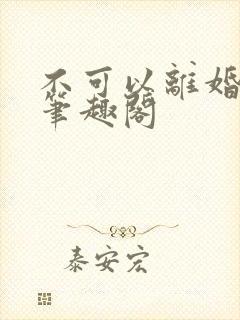 不可以離婚
筆趣閣
泰安宏